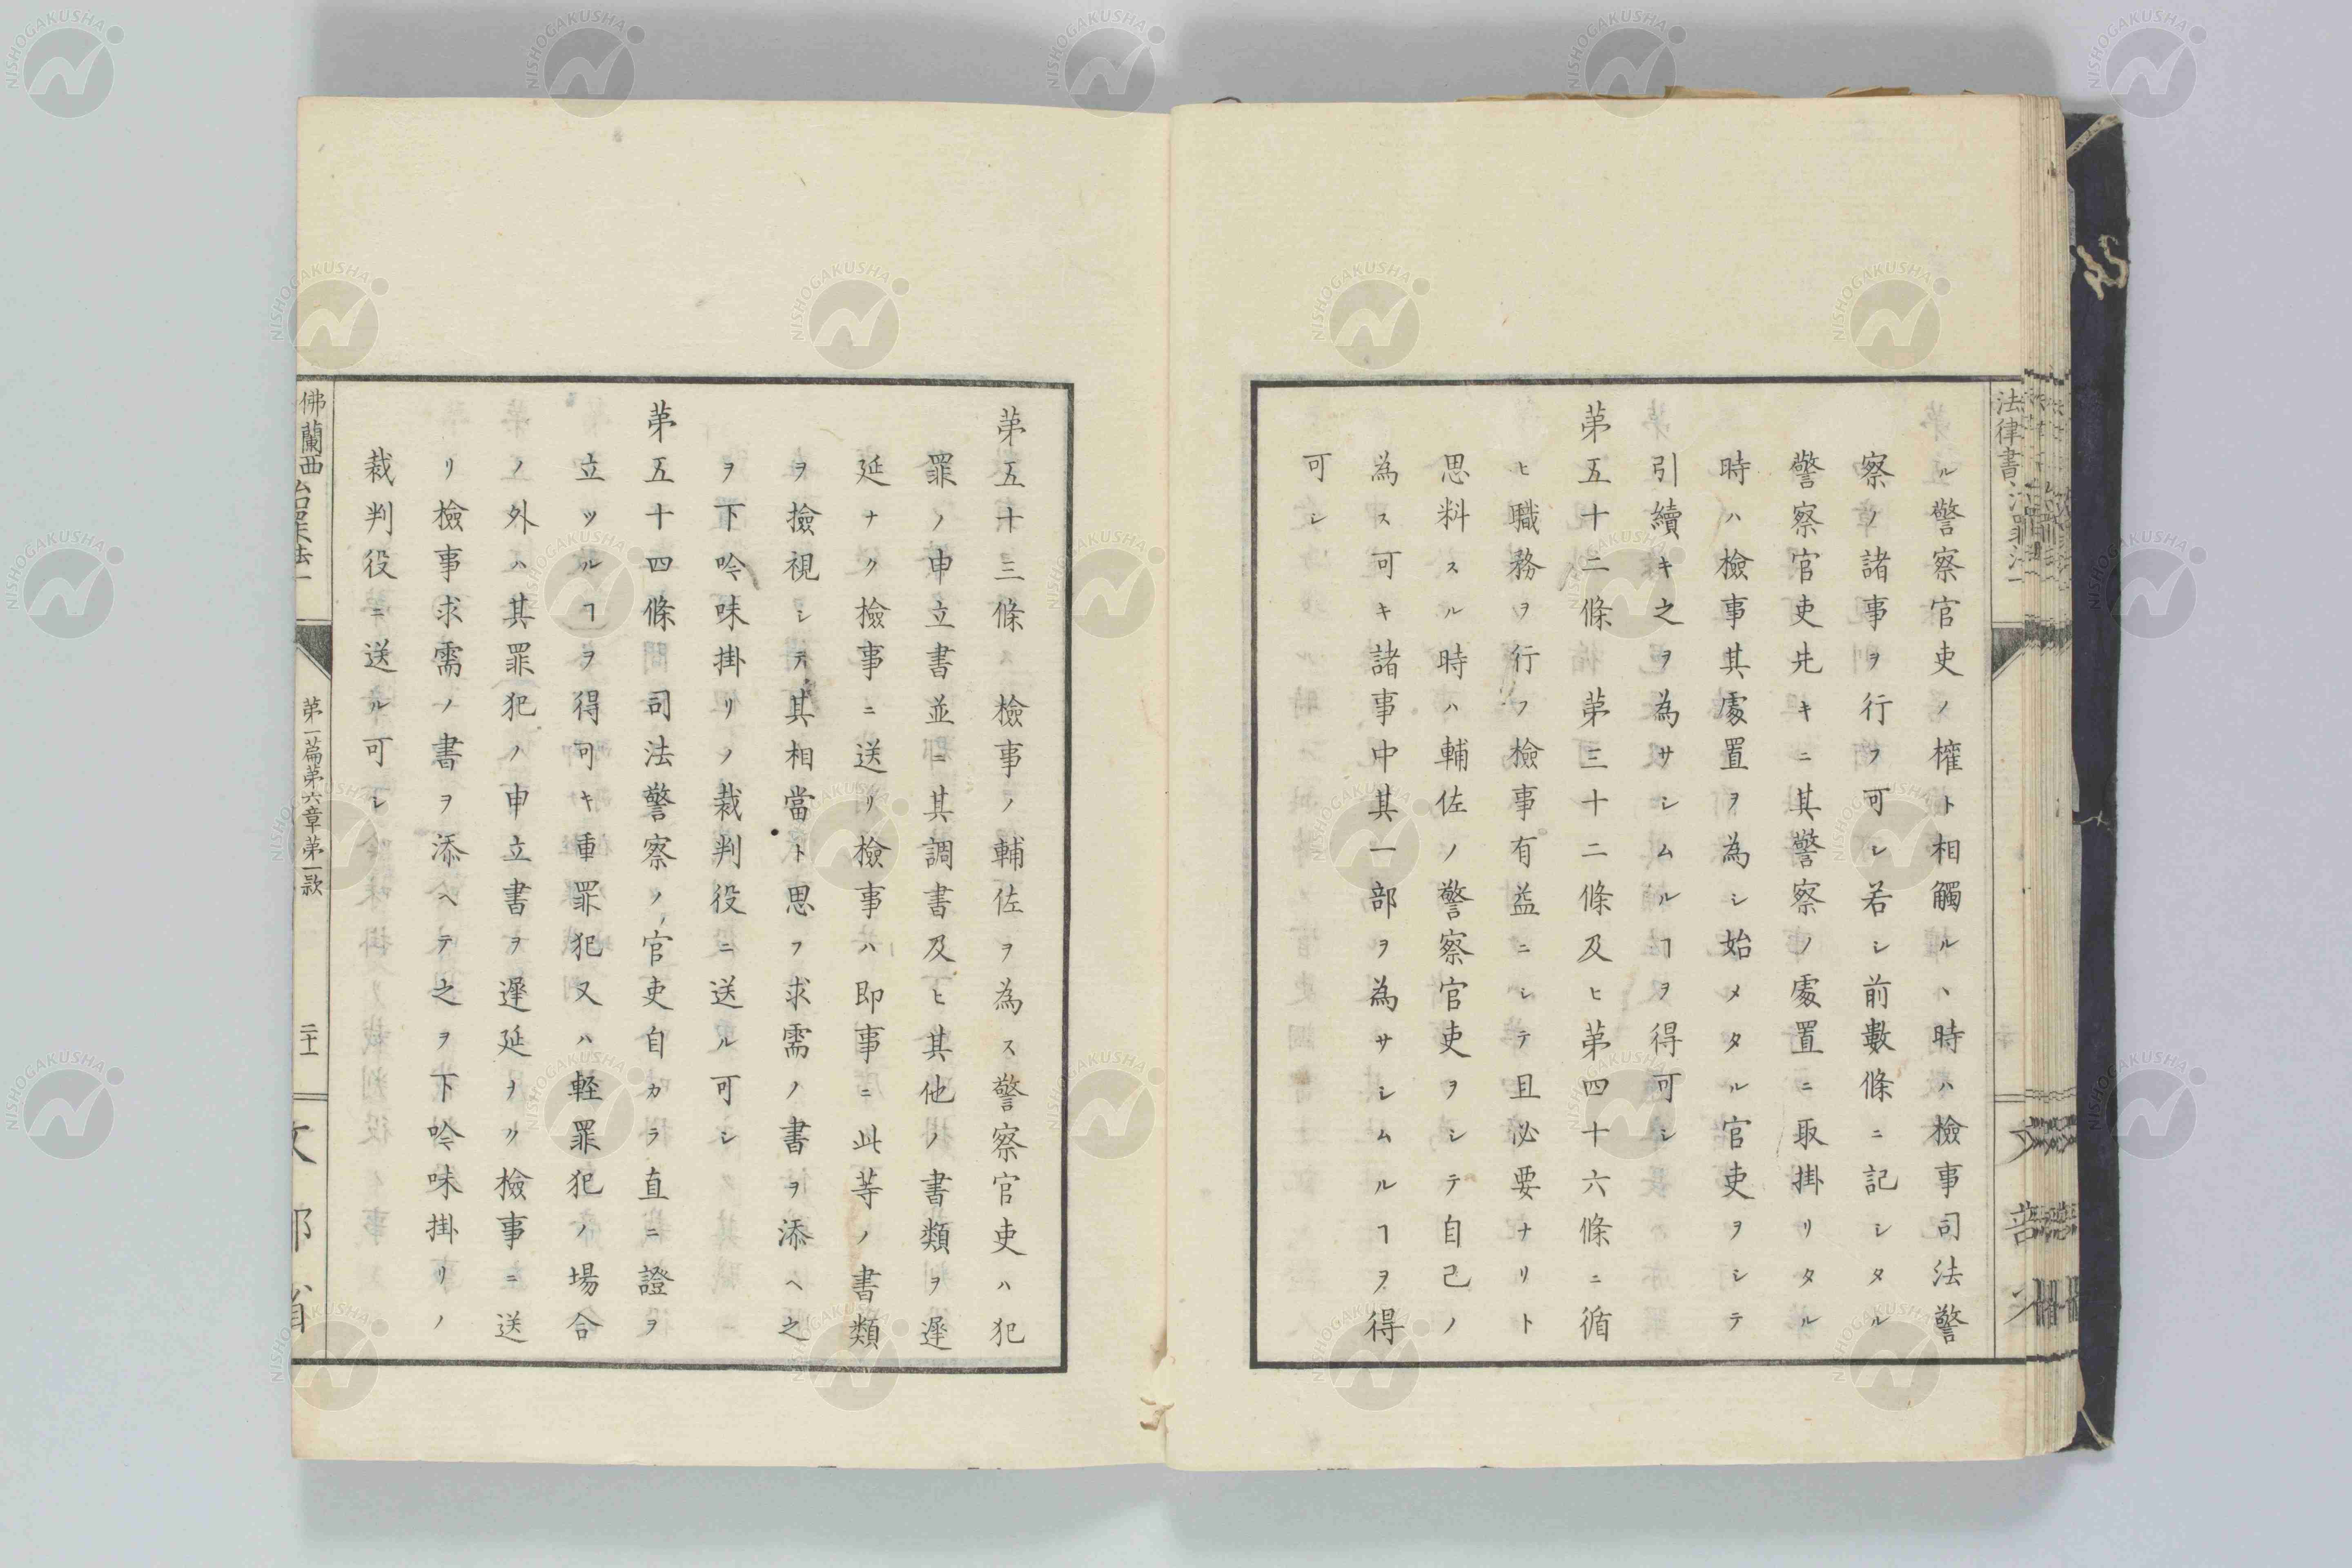 ル警察官吏ノ権ト相觸ルヽ時ハ檢事司法警
察ノ諸事ヲ行フ可シ若シ前數條ニ記シタル
警察官吏先キニ其警察ノ處置ニ取掛リタル
時ハ檢事其處置ヲ為シ始メタル官吏ヲシテ
引續キ之ヲ為サシムルヿヲ得可シ
苐五十二條 苐三十二條及ヒ苐四十六條ニ循
ヒ職務ヲ行フ檢事有益ニシテ且必要ナリト
思料スル時ハ輔佐ノ警察官吏ヲシテ自己ノ
為ス可キ諸事中其一部ヲ為サシムルヿヲ得
可シ
苐五十三條 檢事ノ輔佐ヲ為ス警察官吏ハ犯
罪ノ申立書並ニ其調書及ヒ其他ノ書類ヲ遲
延ナク檢事ニ送リ檢事ハ即事ニ此等ノ書類
ヲ撿視シテ其相當ト思フ求需ノ書ヲ添ヘ之
ヲ下吟味掛リノ裁判役ニ送ル可シ
苐五十四條 司法警察ノ官吏自カラ直ニ證ヲ
立ツルヿヲ得可キ重罪犯又ハ軽罪犯ノ場合
ノ外ハ其罪犯ノ申立書ヲ遲延ナク檢事ニ送
リ檢事求需ノ書ヲ添ヘテ之ヲ下吟味掛リノ
裁判役ニ送ル可シ
佛蘭西治罪法一
苐一篇苐六章苐一款
二十一
文部省
法律書
NISHOGAKUSHA